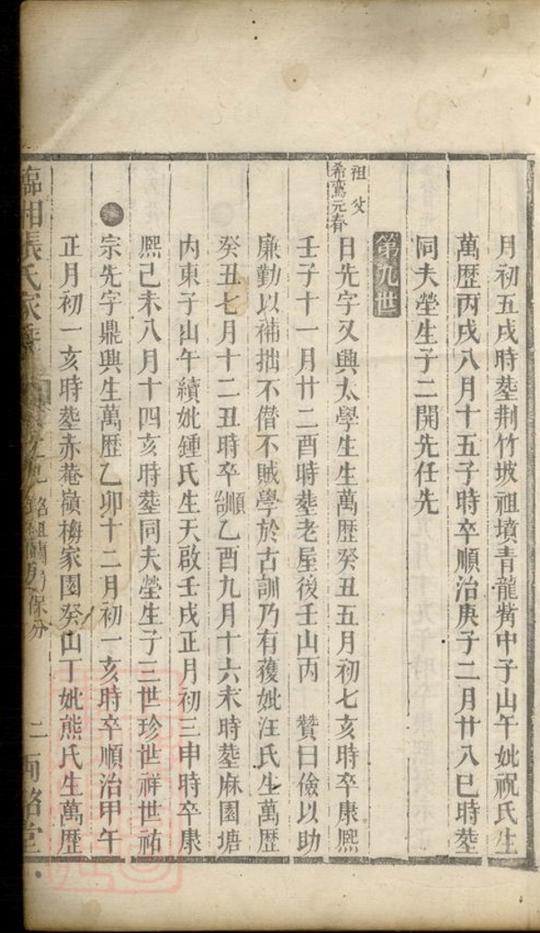 月初五戌時塟荆竹坡祖墳青龍觜中子山午妣祝氏生
萬歷丙戌八月十五子時卒順治庚子二月廿八巳時塟
同夫塋生子二開先任先
第九世
祖父
希鸞元春
日先字又興太學生生萬歷癸丑五月初七亥時卒康熙
壬子十一月廿二酉時塟老屋後壬山丙 贊曰儉以助
廉勤以補拙不僭不賊學於古訓乃有獲妣汪氏生萬歷
癸丑七月十二丑時卒順乙酉九月十六未時塟麻園塘
内東子山午續妣鍾氏生天啟壬戌正月初三申時卒康
熙己未八月十四亥時塟同夫塋生子三世珍世祥世祐
宗先字鼎興生萬歷乙卯十二月初一亥時卒順治甲午
正月初一亥時塟赤菴嶺梅家園癸山丁妣熊氏生萬歷
臨湘張氏家 保分 二